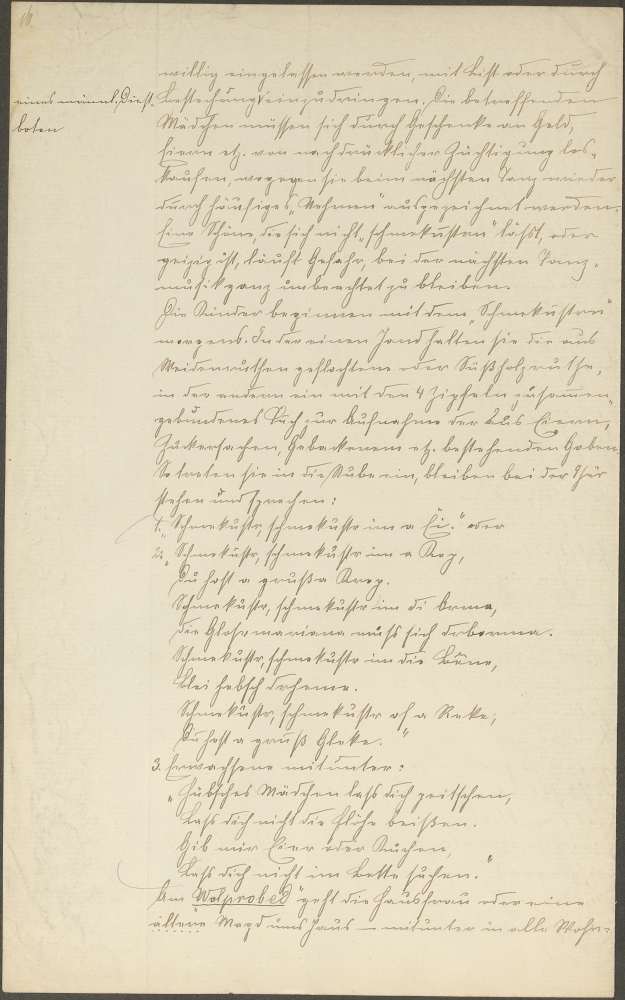 16.
willig eingelassen werden, mit List oder durch
eines männl. Dienst-
boten
Bestechung einzudringen. Die betreffenden
Mädchen müssen sich durch Geschenke an Geld,
Eiern etz. von nachdrücklicher Züchtigung los-
kaufen, wogegen sie beim nächsten Tanz wieder
durch häufiges „Nehmen" ausgezeichnet werden.
Eine Schöne, die sich nicht „schmekustan" läßt, oder
geizig ist, läuft Gefahr, bei der nächsten Tanz-
musik ganz unbeachtet zu bleiben.
Die Kinder beginnen mit dem „Schmekustan"
morgens. In der einen Hand halten sie die aus
Weidenruthen geflochtene oder Süßholzruthe,
in der andern ein mit den 4 Zipfeln zusammen-
gebundenes Tuch zur Aufnahme der aus Eiern,
Zuckersachen, Gebackenem etz. bestehenden Gaben.
So treten sie in die Stube ein, bleiben bei der Thür
stehen und sprechen:
1. „Schmekustr, schmekustr im a Ei." oder
2. „Schmekustr, schmekustr im a
Du host a grußa
Schmekustr, schmekustr im di
die muß sich
Schmekustr, schmekustr im die
hebsch
Schmekustr, schmekustr of a
Du host a gruß
3. Erwachsene mitunter:
„Hübsches Mädchen laß dich peitschen,
Laß dich nicht die Flöhe beißen.
Gib mir Eier oder Kuchen,
Laß dich nicht im Bette suchen."
Am „Wolprobed" geht die Hausfrau oder eine
ältere Magd ums Haus — mitunter in alle Wohn-